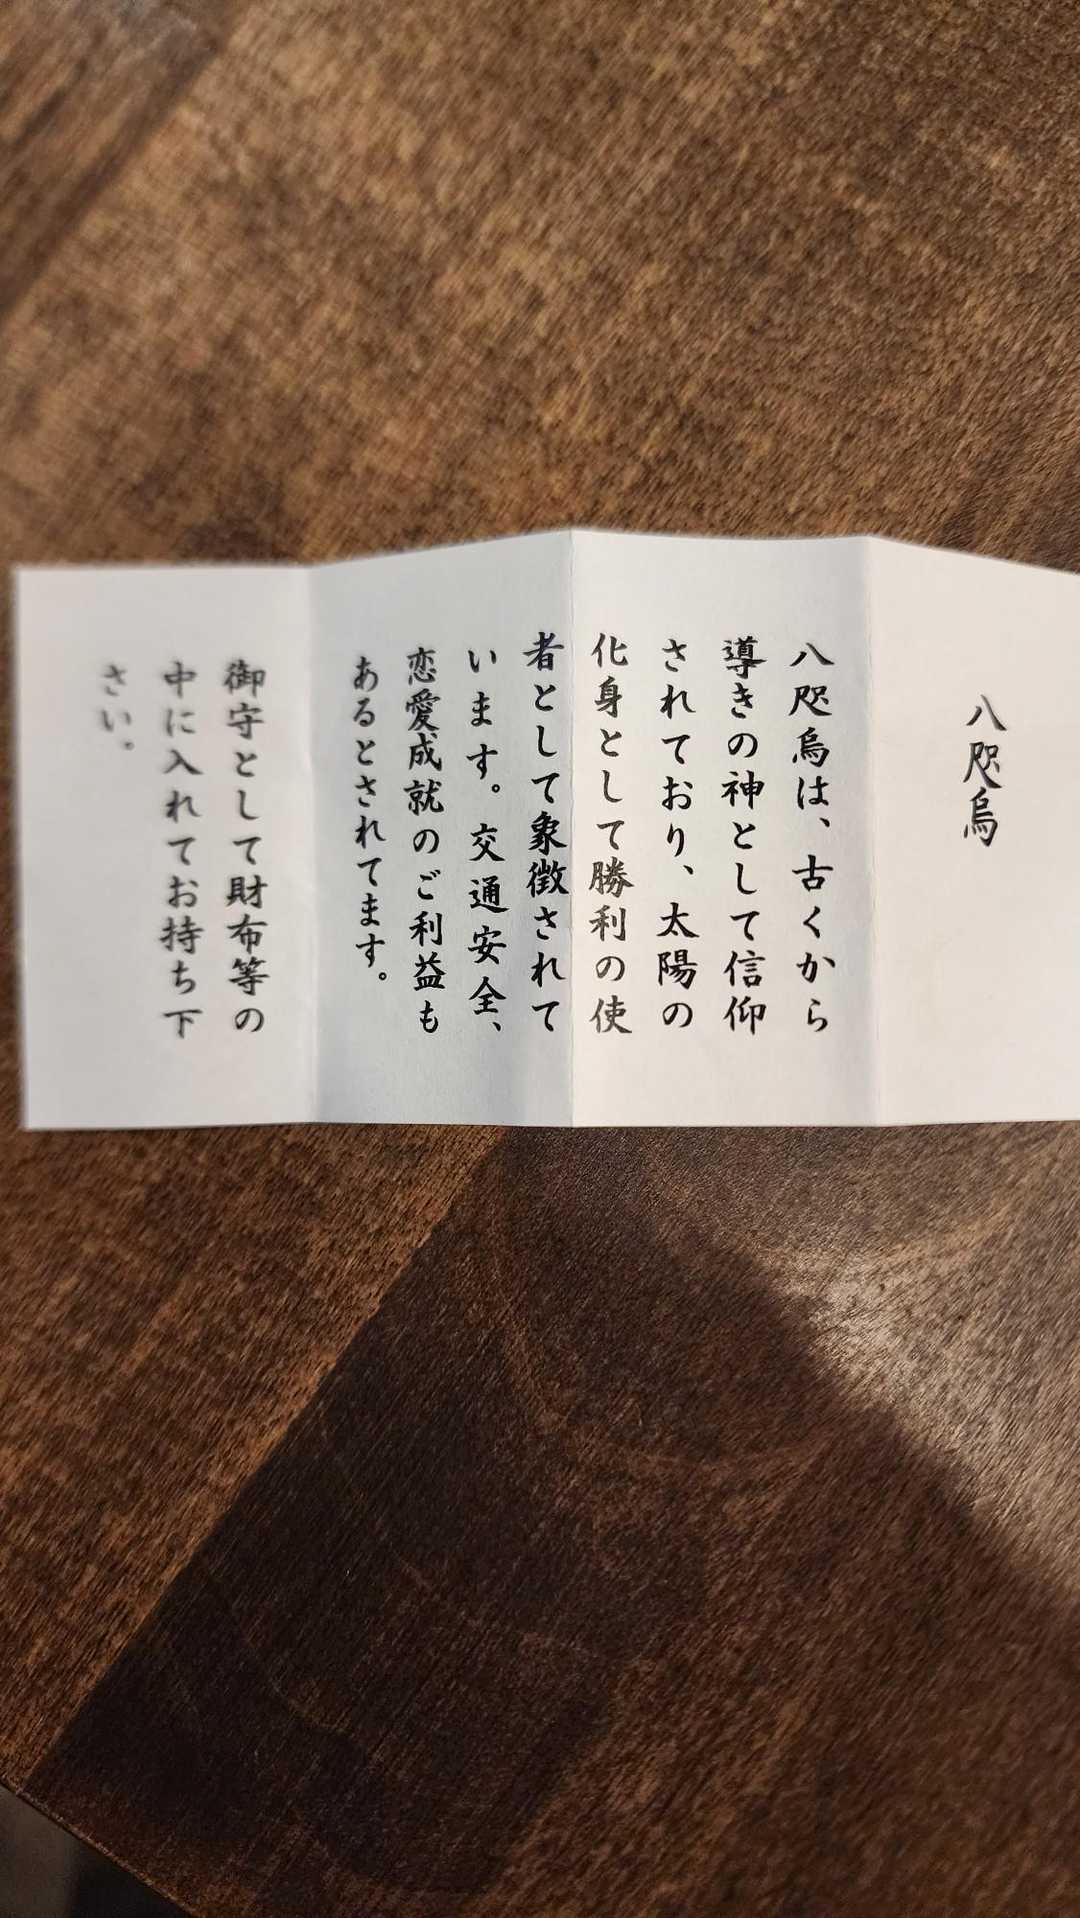 八咫烏
八咫烏は、古くから
導きの神として信仰
されており、太陽の
化身として勝利の使
者として象徴されて
います。交通安全、
恋愛成就のご利益も
あるとされてます。
御守として財布等の
中に入れてお持ち下
さい。